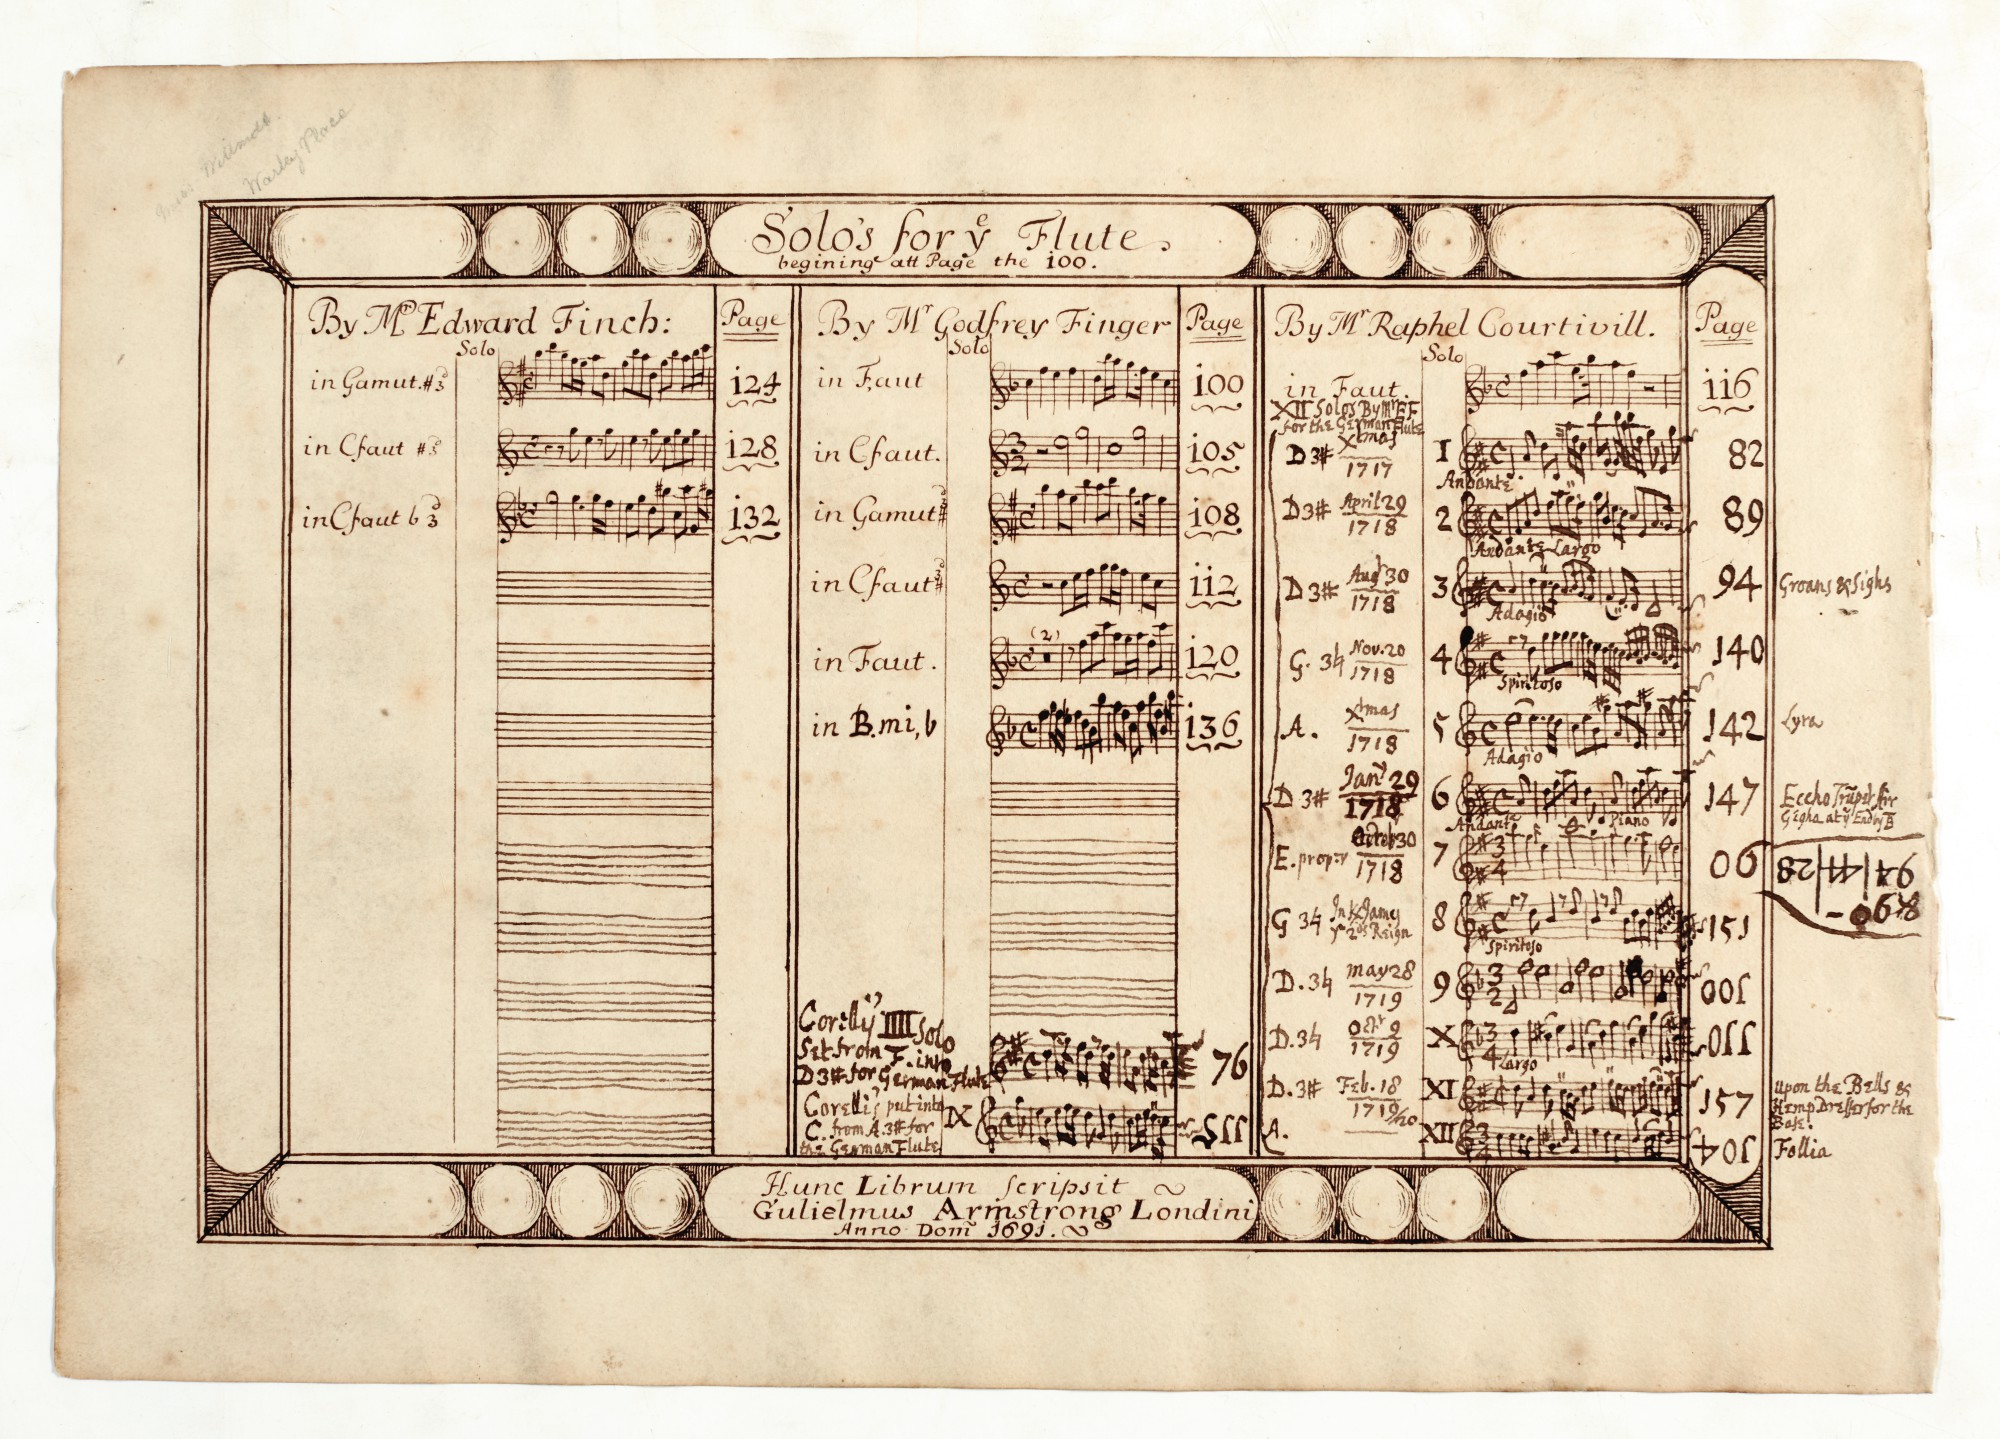 Miss Willmott
Warley Place
Solo's for yᵉ Flute.
begining att Page the 100.
By Mʳ Edward Finch:
Page
Solo
in Gamut. #3ᵈ
124
in Cfaut #3ᵈ
128
in Cfaut b 3ᵈ
132
By Mʳ Godfrey Finger
Page
Solo
in F,aut
100
in Cfaut.
105
in Gamut #3ᵈ
108
in Cfaut #3ᵈ
112
in Faut.
(2)
120
in B.mi, b
136
Corelli's IIII Solo
Set from F. into
D 3# for German Flute
76
Corelli's put into IX
C.. from A.3# for
the German Flute
115
By Mʳ Raphel Courtivill.
Page
Solo
in Faut.
116
XII Solos By mʳ E F
for the German Flute
D 3# Xtmas 1717 1 Andante 82
D 3# April 29 1718 2 Andante Largo 89
D 3# Augᵗ 30 1718 3 Adagio 94 Groans & Sighs
G. 3♮ Nov. 20 1718 4 Spiritoso 140
A. Xtmas 1718 5 Adagio 142 Lyra
D 3# Janʸ 29 1718 6 Andante Piano 147 Eccho Trumpet
E. prop:ʳ Octobʳ 30 1718 7 90
94|44|28
G 3♮ In K James yᵉ 2ᵈˢ Reign 8 Spiritoso 151
D. 3♮ may 28 1719 9 100
D. 3♮ Octʳ 9 1719 X Largo 110
D. 3# Feb. 18 1719/20 XI 157 upon the Bells &
Hemp Dresser for the
Base.
A. XII 104 Follia
Hunc Librum scripsit
Gulielmus Armstrong Londini
Anno Dom̄ 1691.